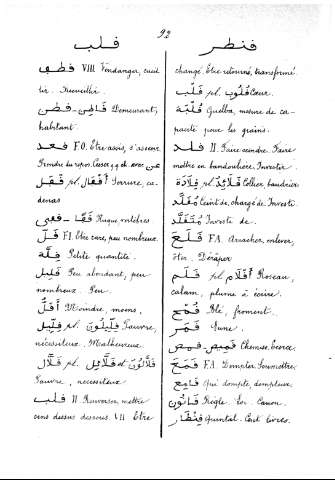 92
قلب
قنطر
قطف VIII Vendanger, cueil
lir. Recueillir.
قاطن - قطن Demeurant,
habitant.
قعد F.O. Être assis, s'asseoir
Prendre du repos. Cesser q q ch. avec عن
قفل pl. أقفال Serrure, ca-
denas
قفا - قفى Nuque, vertèbres
قلّ F.I. Être rare, peu nombreux.
قلّة Petite quantité.
قليل Peu abondant, peu
nombreux. Peu.
أقلّ Moindre, moins.
قليل pl. قليلون Pauvre,
nécessiteux. Malheureux.
قلّال pl. قلائل et قلّالون
Pauvre, nécessiteux
قلب II Renverser, mettre
sens dessus dessous. VII Être
changé. Être retourné, transformé.
قلب pl. قلوب Cœur.
قلبة Quelba, mesure de ca-
pacité pour les grains.
قلد II. Faire ceindre. Faire
mettre en bandoulière. Investir.
قلادة pl. قلائد Collier, baudrier
مقلّد Ceint de, chargé de. Investi.
متقلّد Investi de.
قلع F.A. Arracher, enlever,
ôter. Déraper
قلم pl. أقلام Roseau,
calam, plume à écrire.
قمح Blé, froment.
قمر Lune.
قميص - قمص Chemise, tunique.
قمع F.A. Dompter. Soumettre.
قامع Qui dompte, dompteur.
قانون Règle. Loi. Canon.
قنطار Quintal. Cent livres.